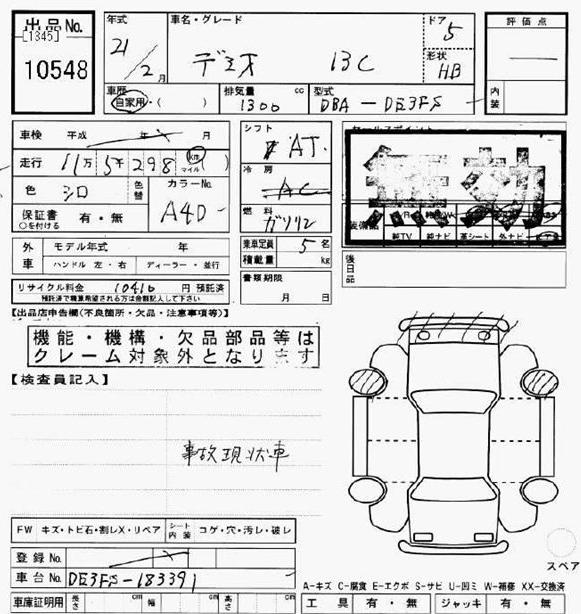 出品No.
[1345]
10548
年式
21/2月
車名・グレード
デミオ 13C
ドア
5
形状
HB
評価点
内装
車歴
自家用・( )
排気量
1300 cc
型式
DBA-DE3FS
車検 平成 年 月
走行 11万5千298 (km マイル)
色 シロ
色替
カラーNo.
A4D
保証書 有・無
○を付ける
外車
モデル年式 年
ハンドル 左・右 ディーラー・並行
リサイクル料金 10410 円 預託済
預託済で精算希望される方は金額記入して下さい
シフト
AT
冷房
AC
燃料
ガソリン
乗車定員 5名
積載量 kg
書類期限
月 日
セールスポイント
装備品
純TV 純ナビ 革シート 外ナビ
後日品
【出品店申告欄(不良箇所・欠品・注意事項等)】
機能・機構・欠品部品等は
クレーム対象外となります
【検査員記入】
事故現状車
FW キズ・トビ石・割レX・リペア シート内装 コゲ・穴・汚レ・破レ
登録No.
車台No. DE3FS-183391
車庫証明用 長さ cm 幅 cm 高さ cm
スペア
A-キズ C-腐食 E-エクボ S-サビ U-凹ミ W-補修 XX-交換済
工具 有・無 ジャッキ 有・無